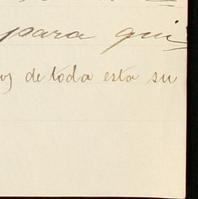 para qui
de toda esta su